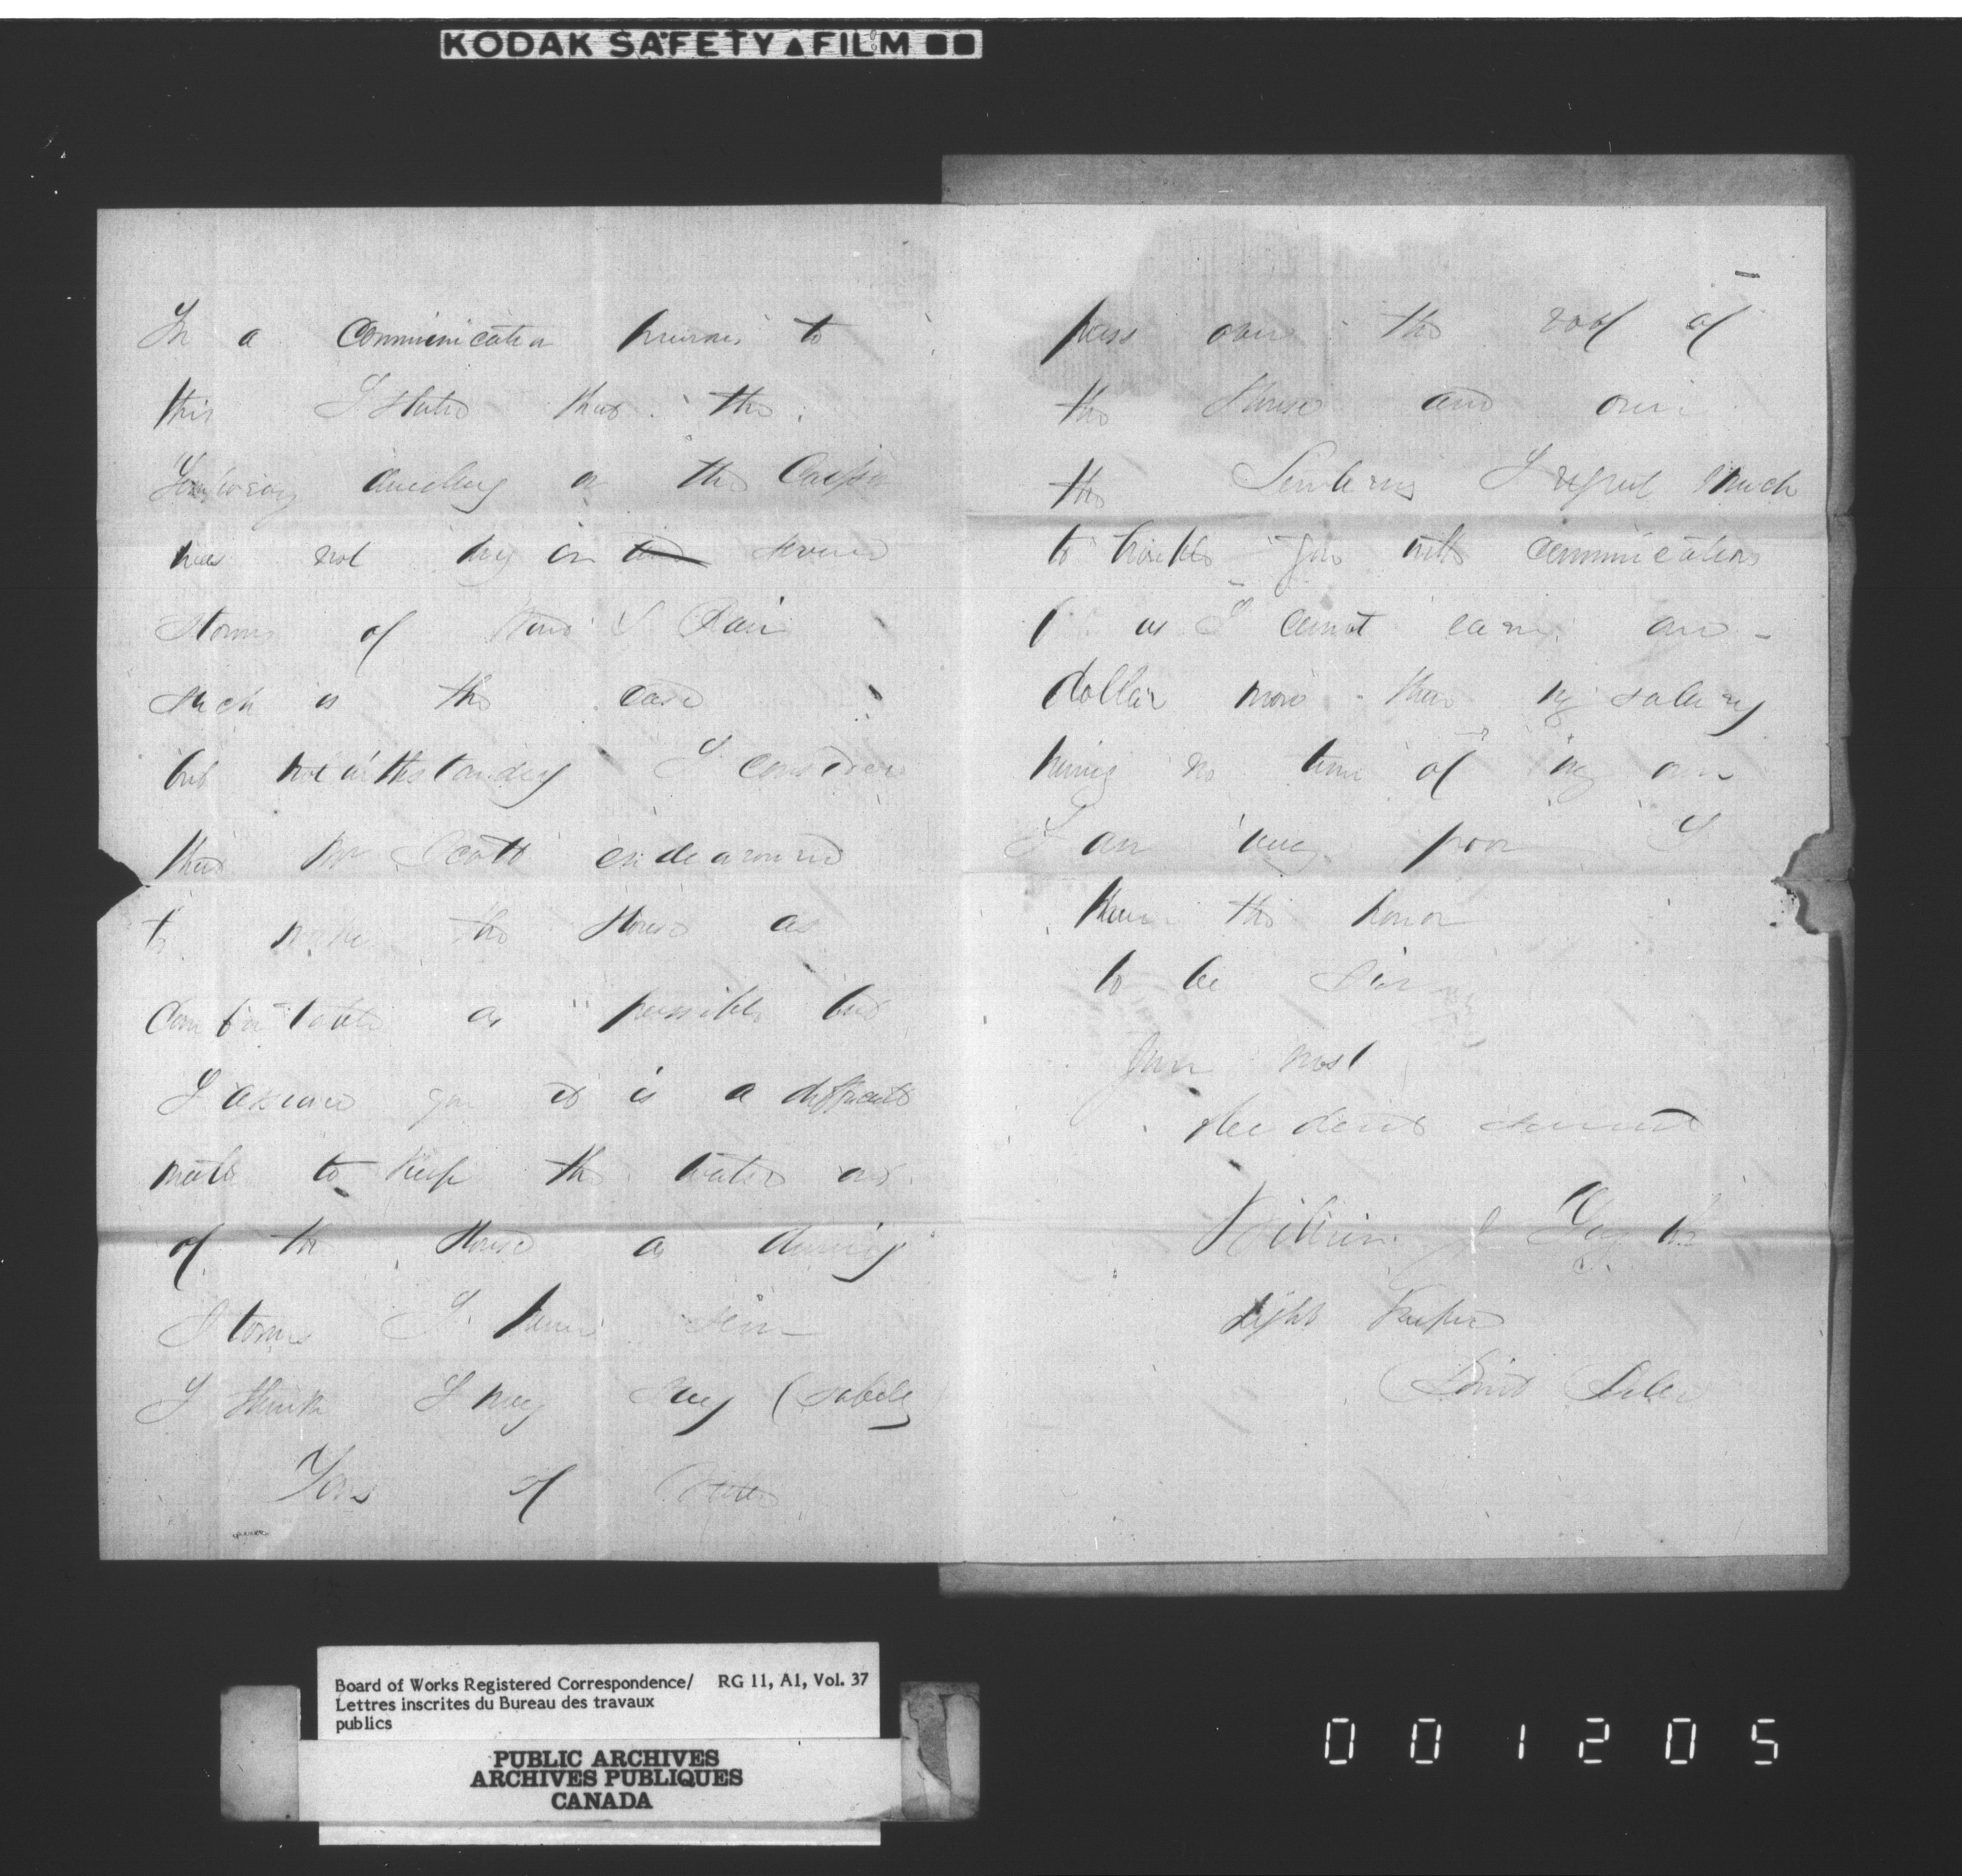 KODAK SAFETY FILM
In a communication previous to
this I stated that the
Temporary dwelling on the Caisson
was not dry in severe
storms of Wind & Rain
such is the case
but notwithstanding I consider
that Mr Scott endeavoured
to make the House as
comfortable as possible but
I assure you it is a difficult
matter to keep the water out
of the House as during
Storms I have seen
I think I may say (safely
Tons of Water
pass over the roof of
the House and over
the Lanterns I regret much
to trouble you with communications
as I cannot earn one
dollar more than my salary
having no time of my own
I am very poor I
have the honor
to be Sir
Your most
obedient servant
William
Light Keeper
Board of Works Registered Correspondence/ RG 11, A1, Vol. 37
Lettres inscrites du Bureau des travaux
publics
PUBLIC ARCHIVES
ARCHIVES PUBLIQUES
CANADA
001205